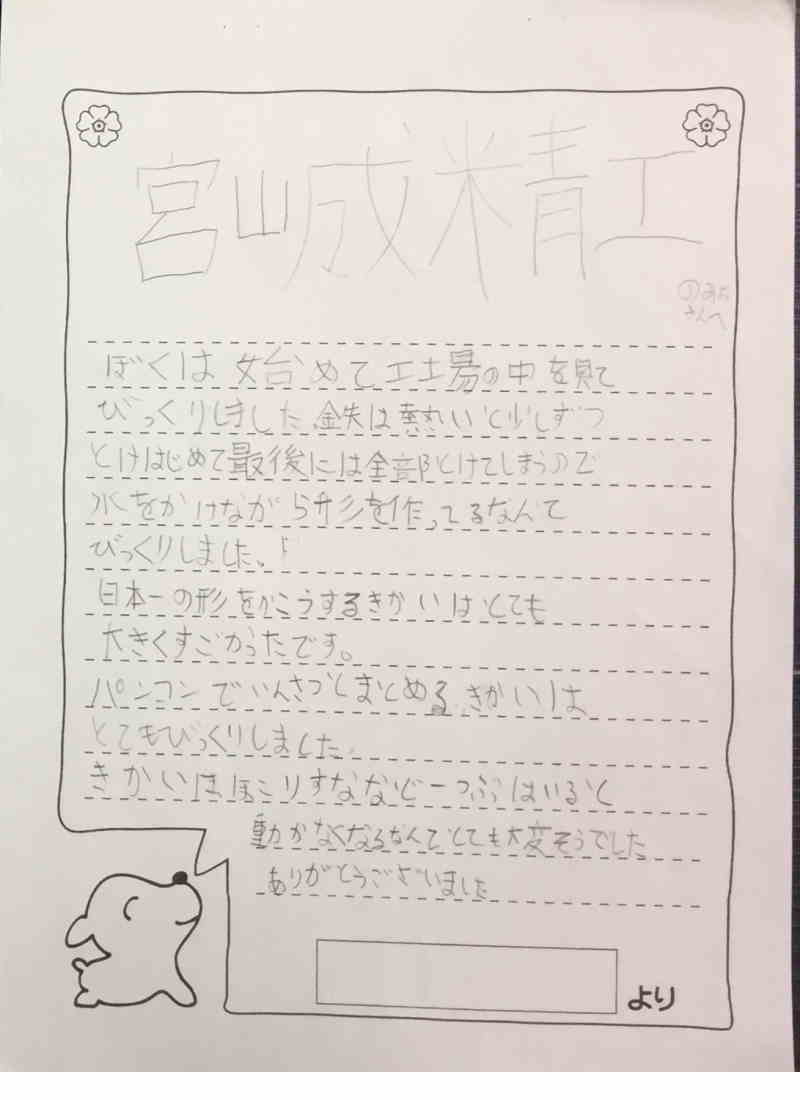 宮城精工
のみち
さんへ
ぼくは始めて工場の中を見て
びっくりしました鉄は熱いと少しずつ
とけはじめて最後には全部とけてしまうので
水をかけながら形を作ってるなんて
びっくりしました。
日本一の形をかこうするきかいはとても
大きくすごかったです。
パンコンでいんさつしまとめるきかいは
とてもびっくりしました。
きかいはほこりすななど一つぶはいると
動かなくなるなんてとても大変そうでした
ありがとうございました
より